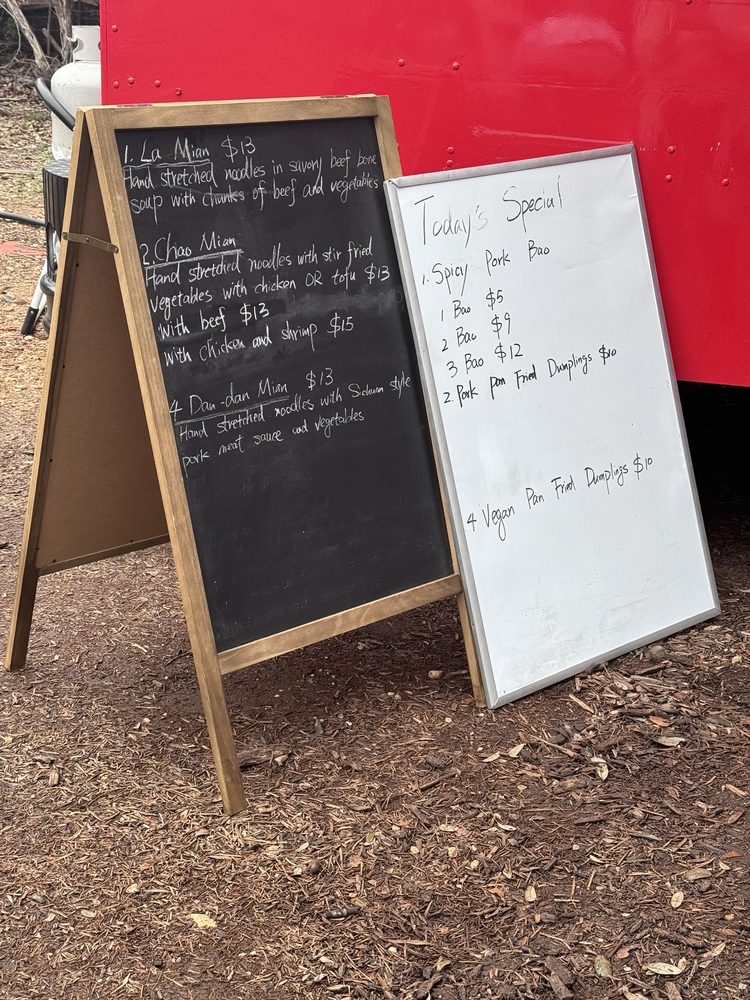 1. La Mian $13
Hand stretched noodles in savory beef bone
soup with chunks of beef and vegetables
2. Chao Mian
Hand stretched noodles with stir fried
vegetables with chicken OR tofu $13
with beef $13
with chicken and shrimp $15
4 Dan-dan Mian $13
Hand stretched noodles with Sichuan style
pork meat sauce and vegetables
Today's Special
1. Spicy Pork Bao
1 Bao $5
2 Bao $9
3 Bao $12
2. Pork Pan Fried Dumplings $10
4 Vegan Pan Fried Dumplings $10